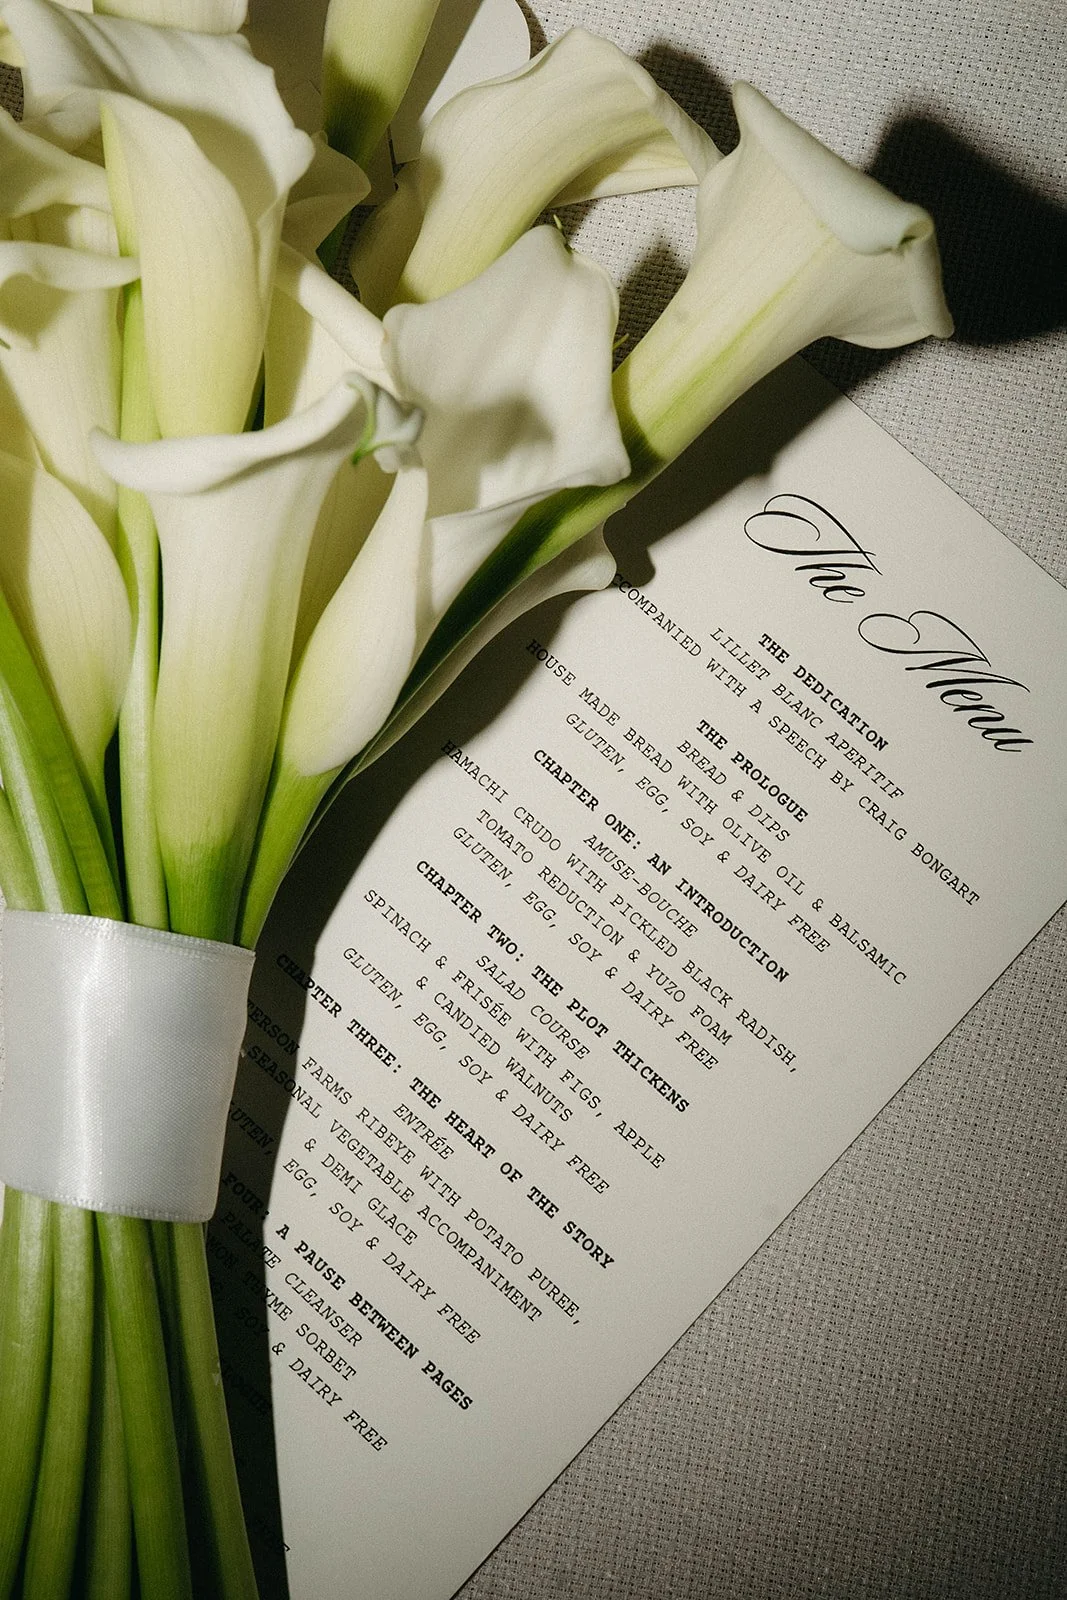 The Menu
THE DEDICATION
LILLET BLANC APERITIF
ACCOMPANIED WITH A SPEECH BY CRAIG BONGART
THE PROLOGUE
BREAD & DIPS
HOUSE MADE BREAD WITH OLIVE OIL & BALSAMIC
GLUTEN, EGG, SOY & DAIRY FREE
CHAPTER ONE: AN INTRODUCTION
AMUSE-BOUCHE
HAMACHI CRUDO WITH PICKLED BLACK RADISH,
TOMATO REDUCTION & YUZO FOAM
GLUTEN, EGG, SOY & DAIRY FREE
CHAPTER TWO: THE PLOT THICKENS
SALAD COURSE
SPINACH & FRISÉE WITH FIGS, APPLE
& CANDIED WALNUTS
GLUTEN, EGG, SOY & DAIRY FREE
CHAPTER THREE: THE HEART OF THE STORY
ENTRÉE
FARMS RIBEYE WITH POTATO PUREE,
SEASONAL VEGETABLE ACCOMPANIMENT
& DEMI GLACE
GLUTEN, EGG, SOY & DAIRY FREE
FOUR: A PAUSE BETWEEN PAGES
PALATE CLEANSER
THYME SORBET
SOY & DAIRY FREE